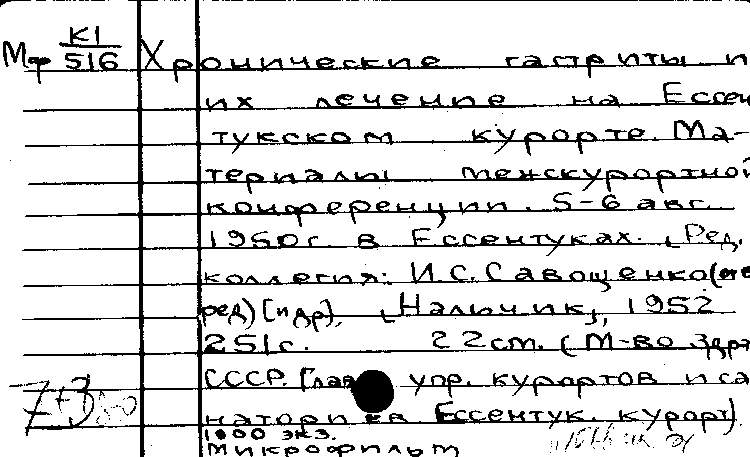 Мф К1/516
Хронические гастриты и
их лечение на Ессен
тукском курорте. Ма-
териалы межкурортной
конференции. 5-6 авг.
1950г. в Ессентуках. [Ред.
коллегия: И.С. Савощенко (отв
ред) [и др]. [Нальчик], 1952
251с. 22см. (М-во здрав
СССР. Глав упр. курортов и са
наториев Ессентук. курорт).
1000 экз.
Микрофильм